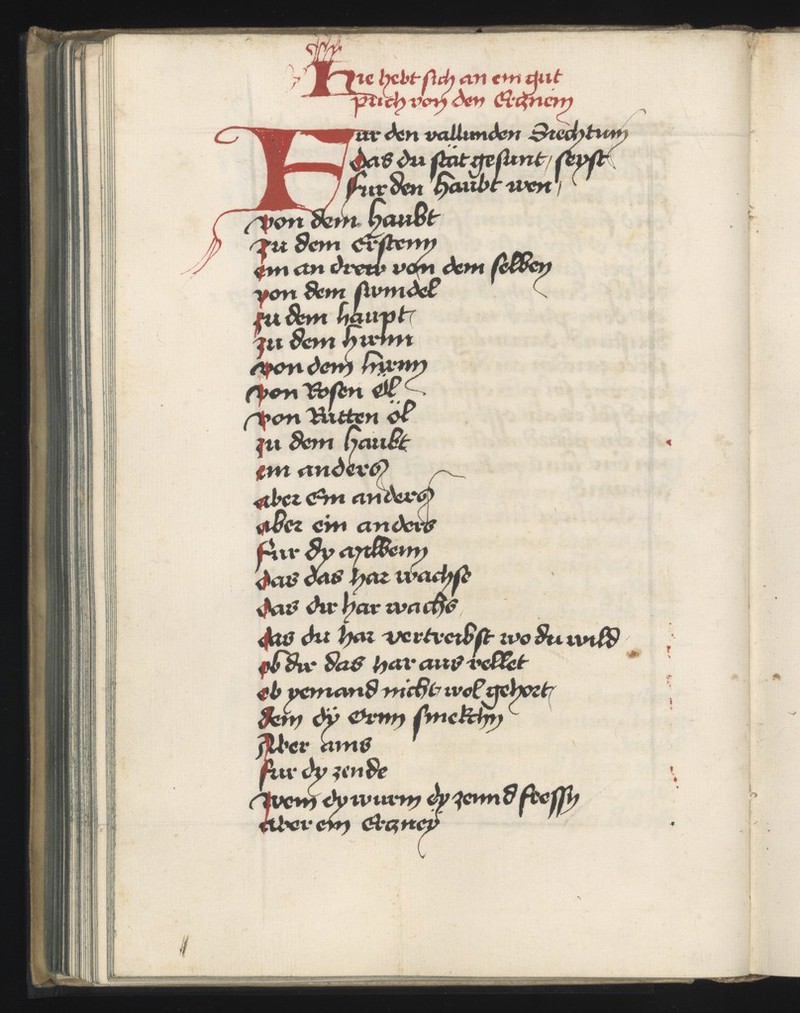 Hie hebt sich an ein gut
puch von den Ercznein
Fur den vallunden Siechtum
das du stät gesunt seyst
Fur den haubt wen
von dem haubt
zu dem Erstenn
ein an drew von dem selben
von dem swindel
zu dem haupt
zu dem hirnn
von dem hirnn
von Rosen Öl
von Kutten öl
zu dem haubt
ein anders
aber Ein anders
aber ein anders
Fur dy milbenn
das das har wachse
das dir har wachs
das du har vertreibst wo du wild
ob dir das har aus vellet
ob yemand nicht wol gehort
dem dÿ Ornn smekchn
Aber ains
fur dy zende
wem dy wurm dy zennd fressn
aber ein Ercznеÿ